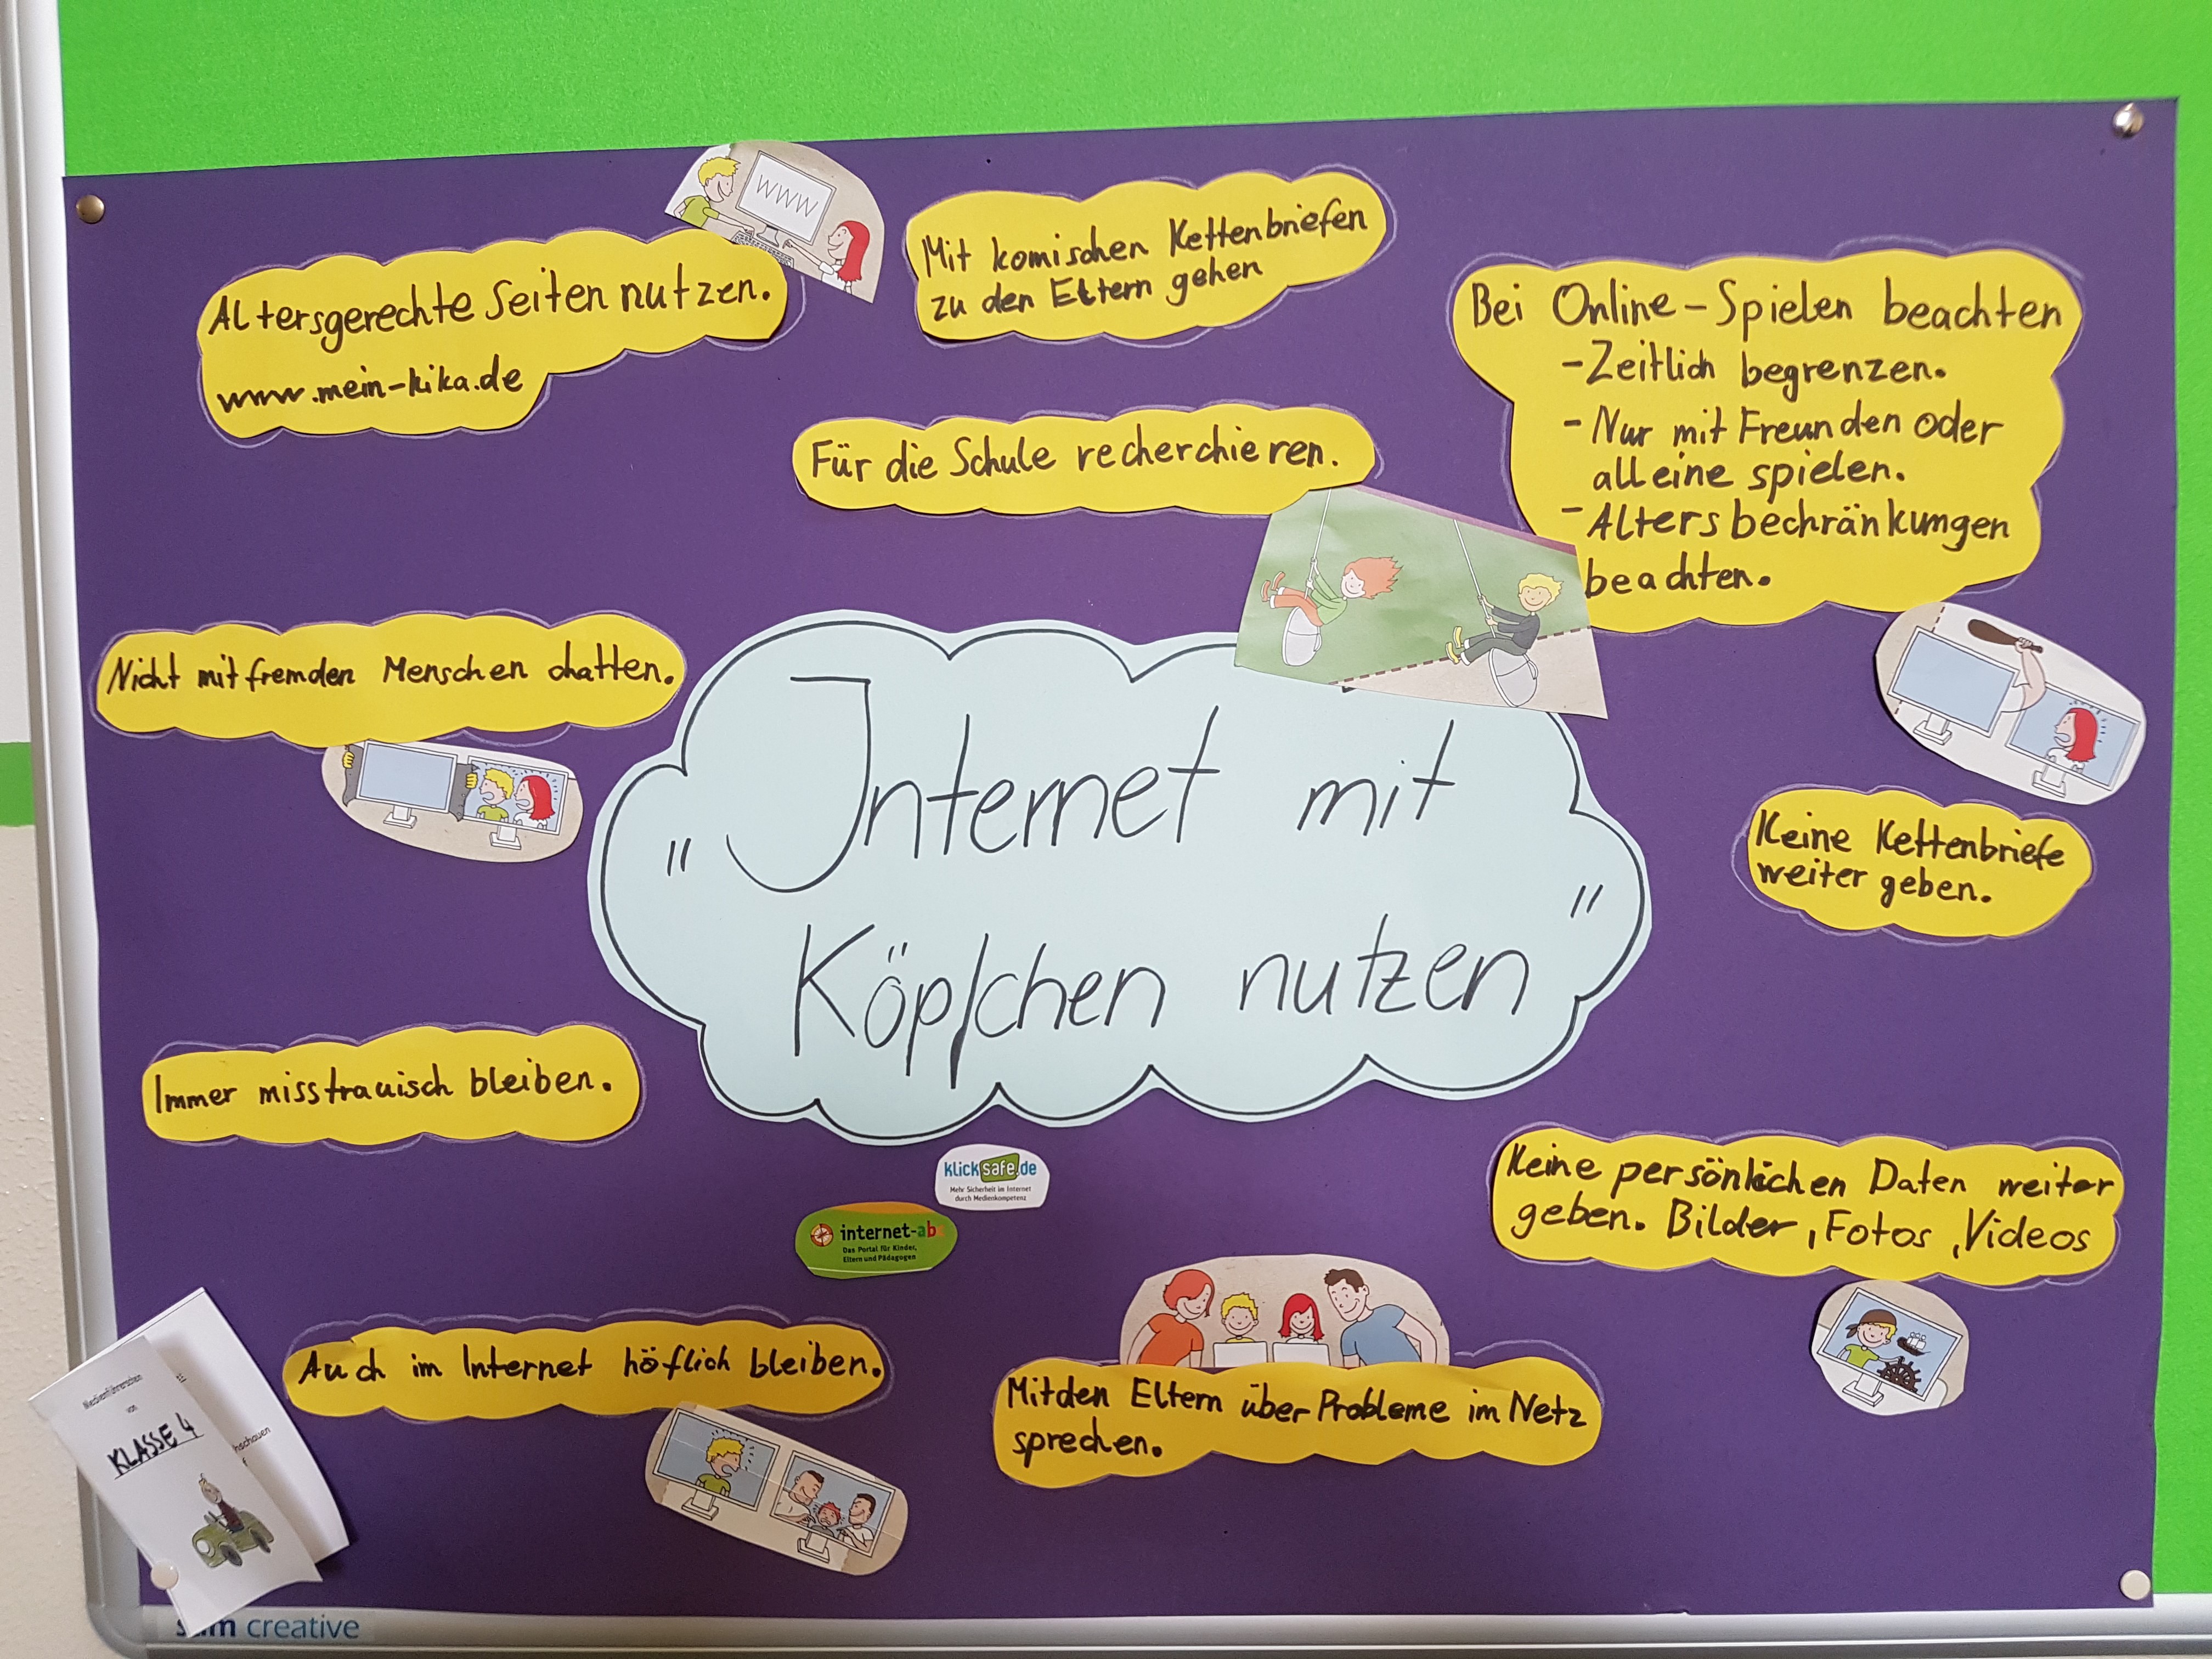 WWW
Altersgerechte Seiten nutzen.
www.mein-kika.de
Mit komischen Kettenbriefen
zu den Eltern gehen
Bei Online-Spielen beachten
-Zeitlich begrenzen.
- Nur mit Freunden oder
alleine spielen.
- Altersbechränkungen
beachten.
Für die Schule recherchieren.
Nicht mit fremden Menschen chatten.
"Internet mit
Köpfchen nutzen"
Keine Kettenbriefe
weiter geben.
Immer misstrauisch bleiben.
klicksafe.de
Mehr Sicherheit im Internet
durch Medienkompetenz
internet-abc
Das Portal für Kinder,
Eltern und Pädagogen
Keine persönlichen Daten weiter
geben. Bilder, Fotos, Videos
Auch im Internet höflich bleiben.
Mit den Eltern über Probleme im Netz
sprechen.
Medienführerschein
von
KLASSE 4
creative